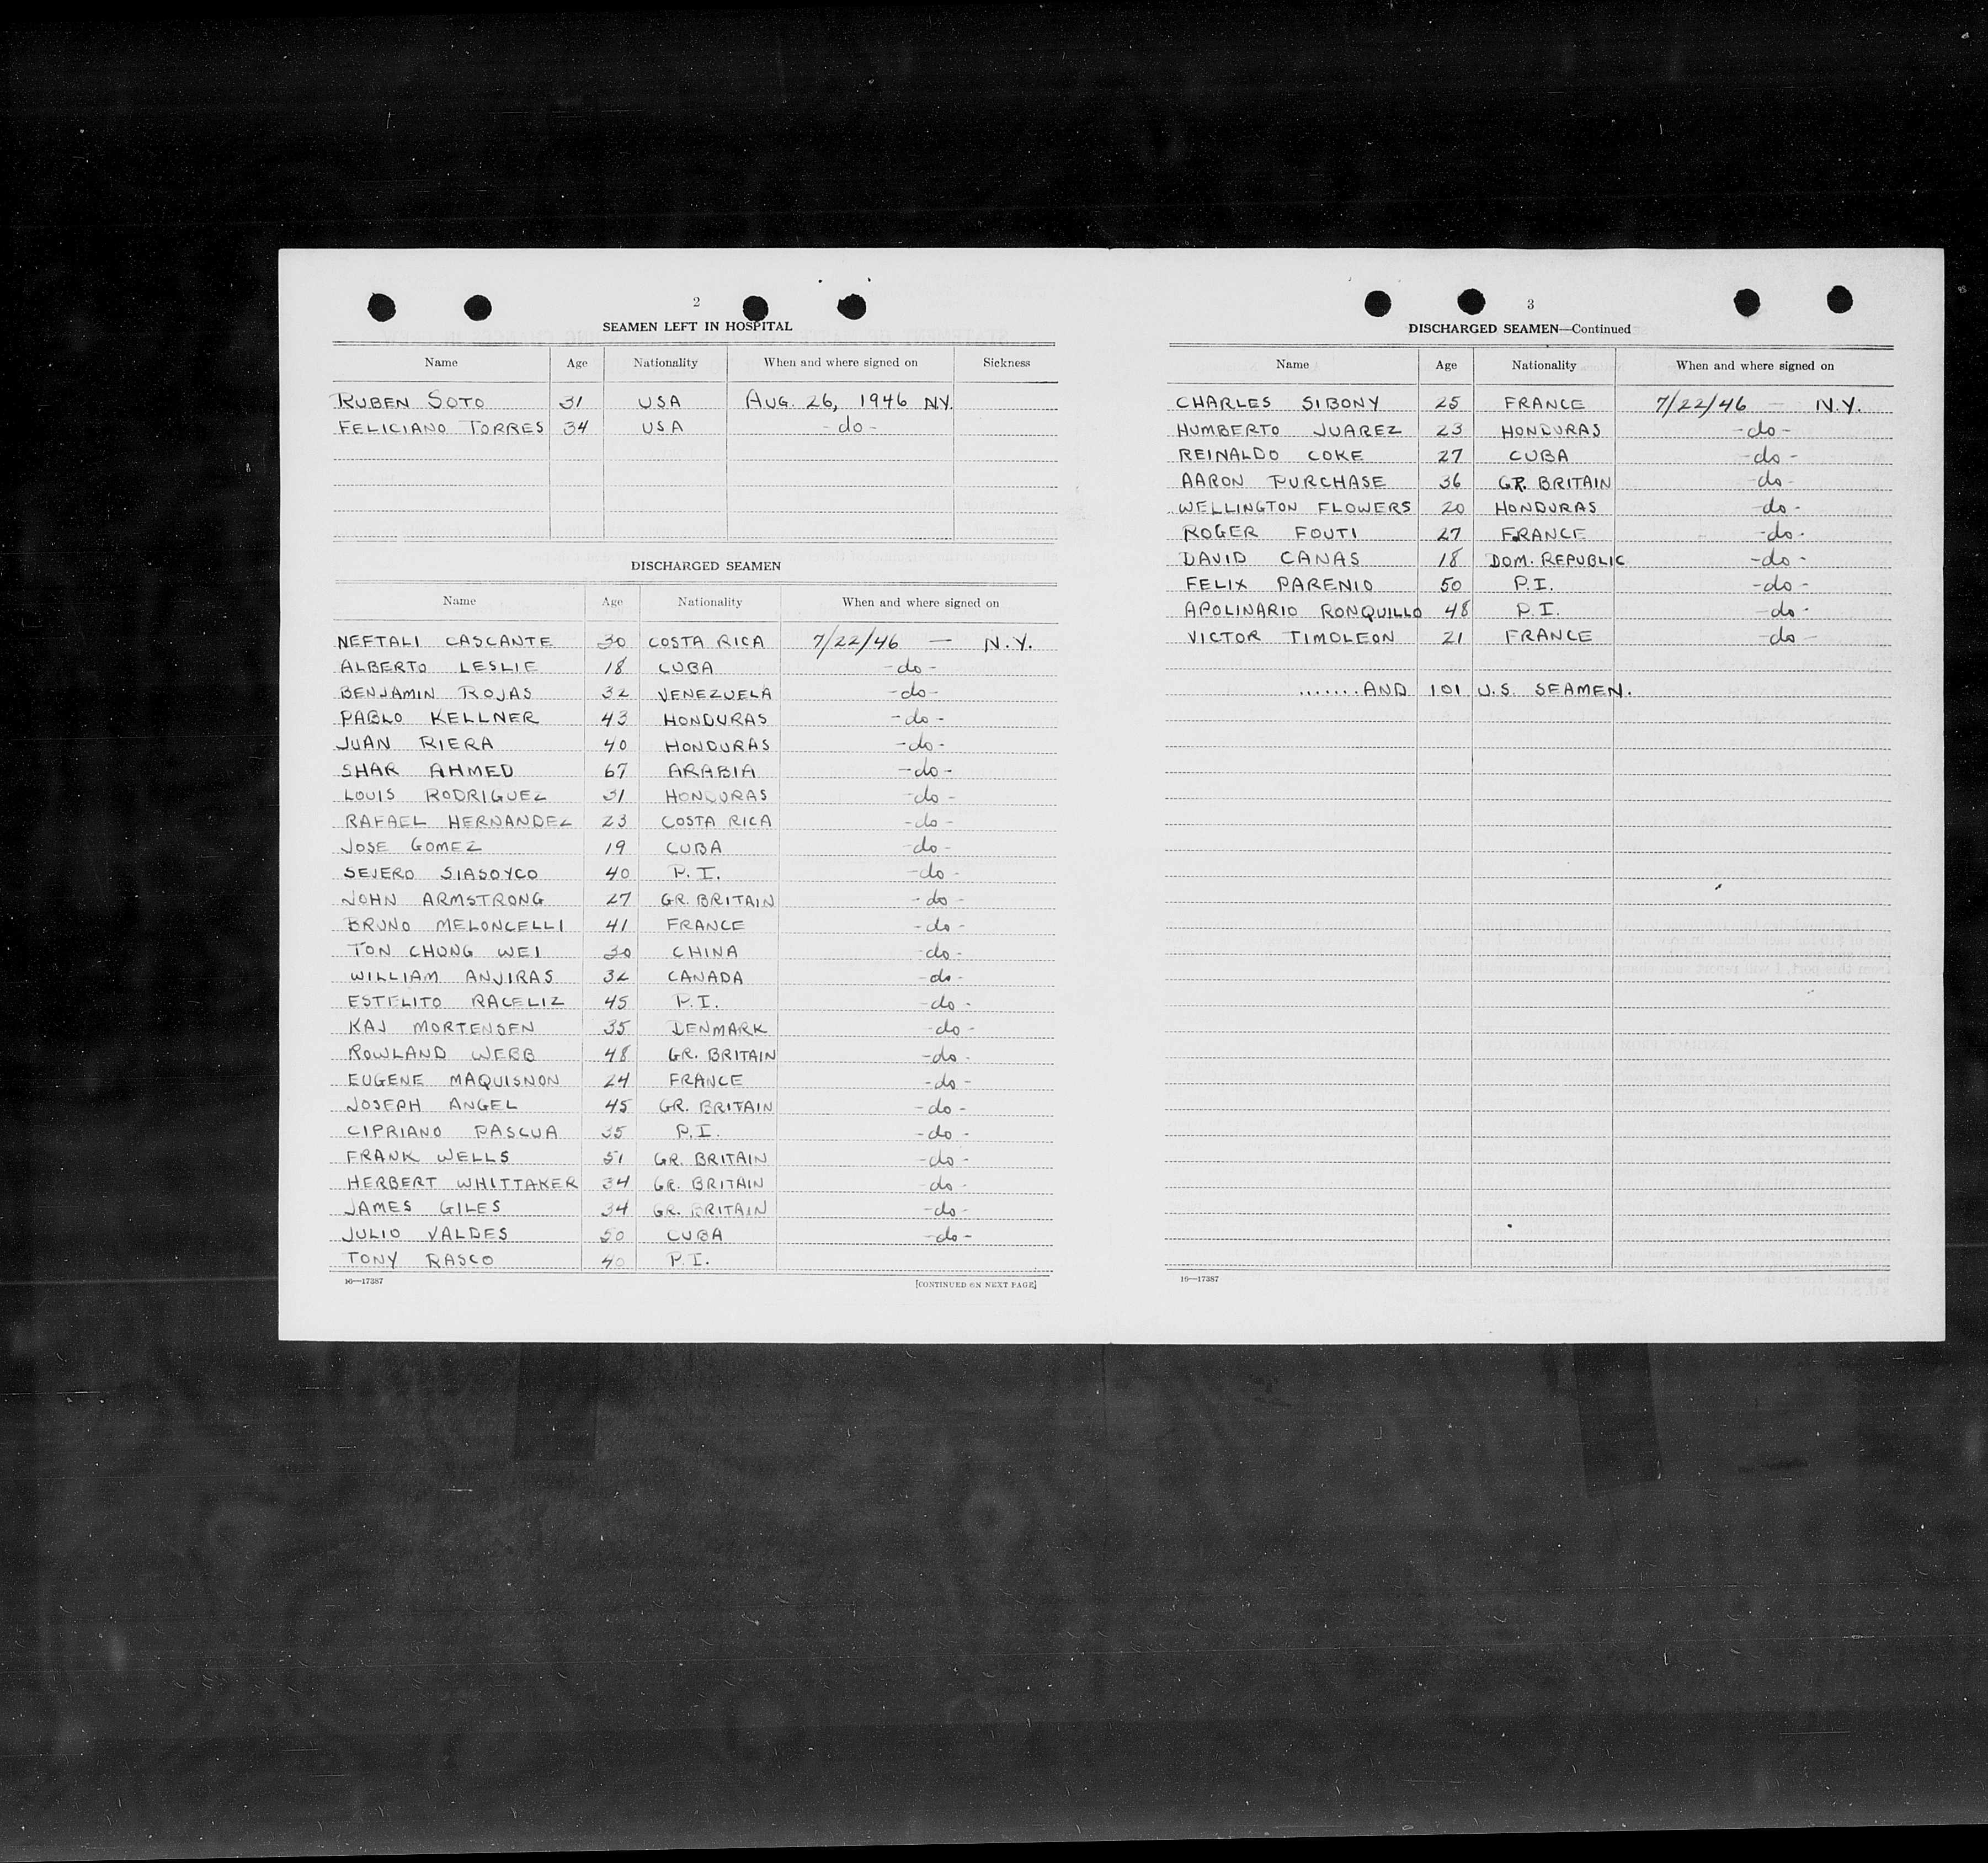 2
SEAMEN LEFT IN HOSPITAL
Name Age Nationality When and where signed on Sickness
RUBEN SOTO 31 USA AUG. 26, 1946 N.Y.
FELICIANO TORRES 34 USA -do-
DISCHARGED SEAMEN
Name Age Nationality When and where signed on
NEFTALI CASCANTE 30 COSTA RICA 7/22/46 — N.Y.
ALBERTO LESLIE 18 CUBA -do-
BENJAMIN ROJAS 32 VENEZUELA -do-
PABLO KELLNER 43 HONDURAS -do-
JUAN RIERA 40 HONDURAS -do-
SHAR AHMED 67 ARABIA -do-
LOUIS RODRIGUEZ 31 HONDURAS -do-
RAFAEL HERNANDEZ 23 COSTA RICA -do-
JOSE GOMEZ 19 CUBA -do-
SEVERO SIASOYCO 40 P.I. -do-
JOHN ARMSTRONG 27 GR. BRITAIN -do-
BRUNO MELONCELLI 41 FRANCE -do-
TON CHUNG WEI 30 CHINA -do-
WILLIAM ANJIRAS 32 CANADA -do-
ESTELITO RACELIZ 45 P.I. -do-
KAJ MORTENSEN 35 DENMARK -do-
ROWLAND WEBB 48 GR. BRITAIN -do-
EUGENE MAQUISNON 24 FRANCE -do-
JOSEPH ANGEL 45 GR. BRITAIN -do-
CIPRIANO PASCUA 35 P.I. -do-
FRANK WELLS 51 GR. BRITAIN -do-
HERBERT WHITTAKER 34 GR. BRITAIN -do-
JAMES GILES 34 GR. BRITAIN -do-
JULIO VALDES 50 CUBA -do-
TONY RASCO 40 P.I.
16—17387 [CONTINUED ON NEXT PAGE]
3
DISCHARGED SEAMEN—Continued
Name Age Nationality When and where signed on
CHARLES SIBONY 25 FRANCE 7/22/46 — N.Y.
HUMBERTO JUAREZ 23 HONDURAS -do-
REINALDO COKE 27 CUBA -do-
AARON PURCHASE 36 GR. BRITAIN -do-
WELLINGTON FLOWERS 20 HONDURAS -do-
ROGER FOUTI 27 FRANCE -do-
DAVID CANAS 18 DOM. REPUBLIC -do-
FELIX PARENIO 50 P.I. -do-
APOLINARIO RONQUILLO 48 P.I. -do-
VICTOR TIMOLEON 21 FRANCE -do-
.......AND 101 U.S. SEAMEN.
16—17387